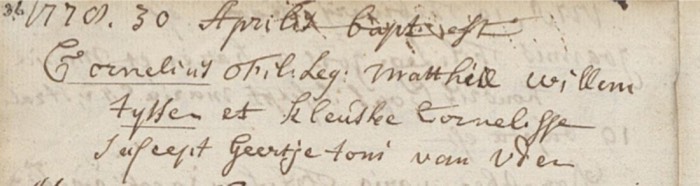 36 1778. 30 Aprilis bapt: est
Cornelius Fil: Leg: Matthiæ willem
tyssen et Kleuske Cornelisse
Suscept Geertje toni van Uden